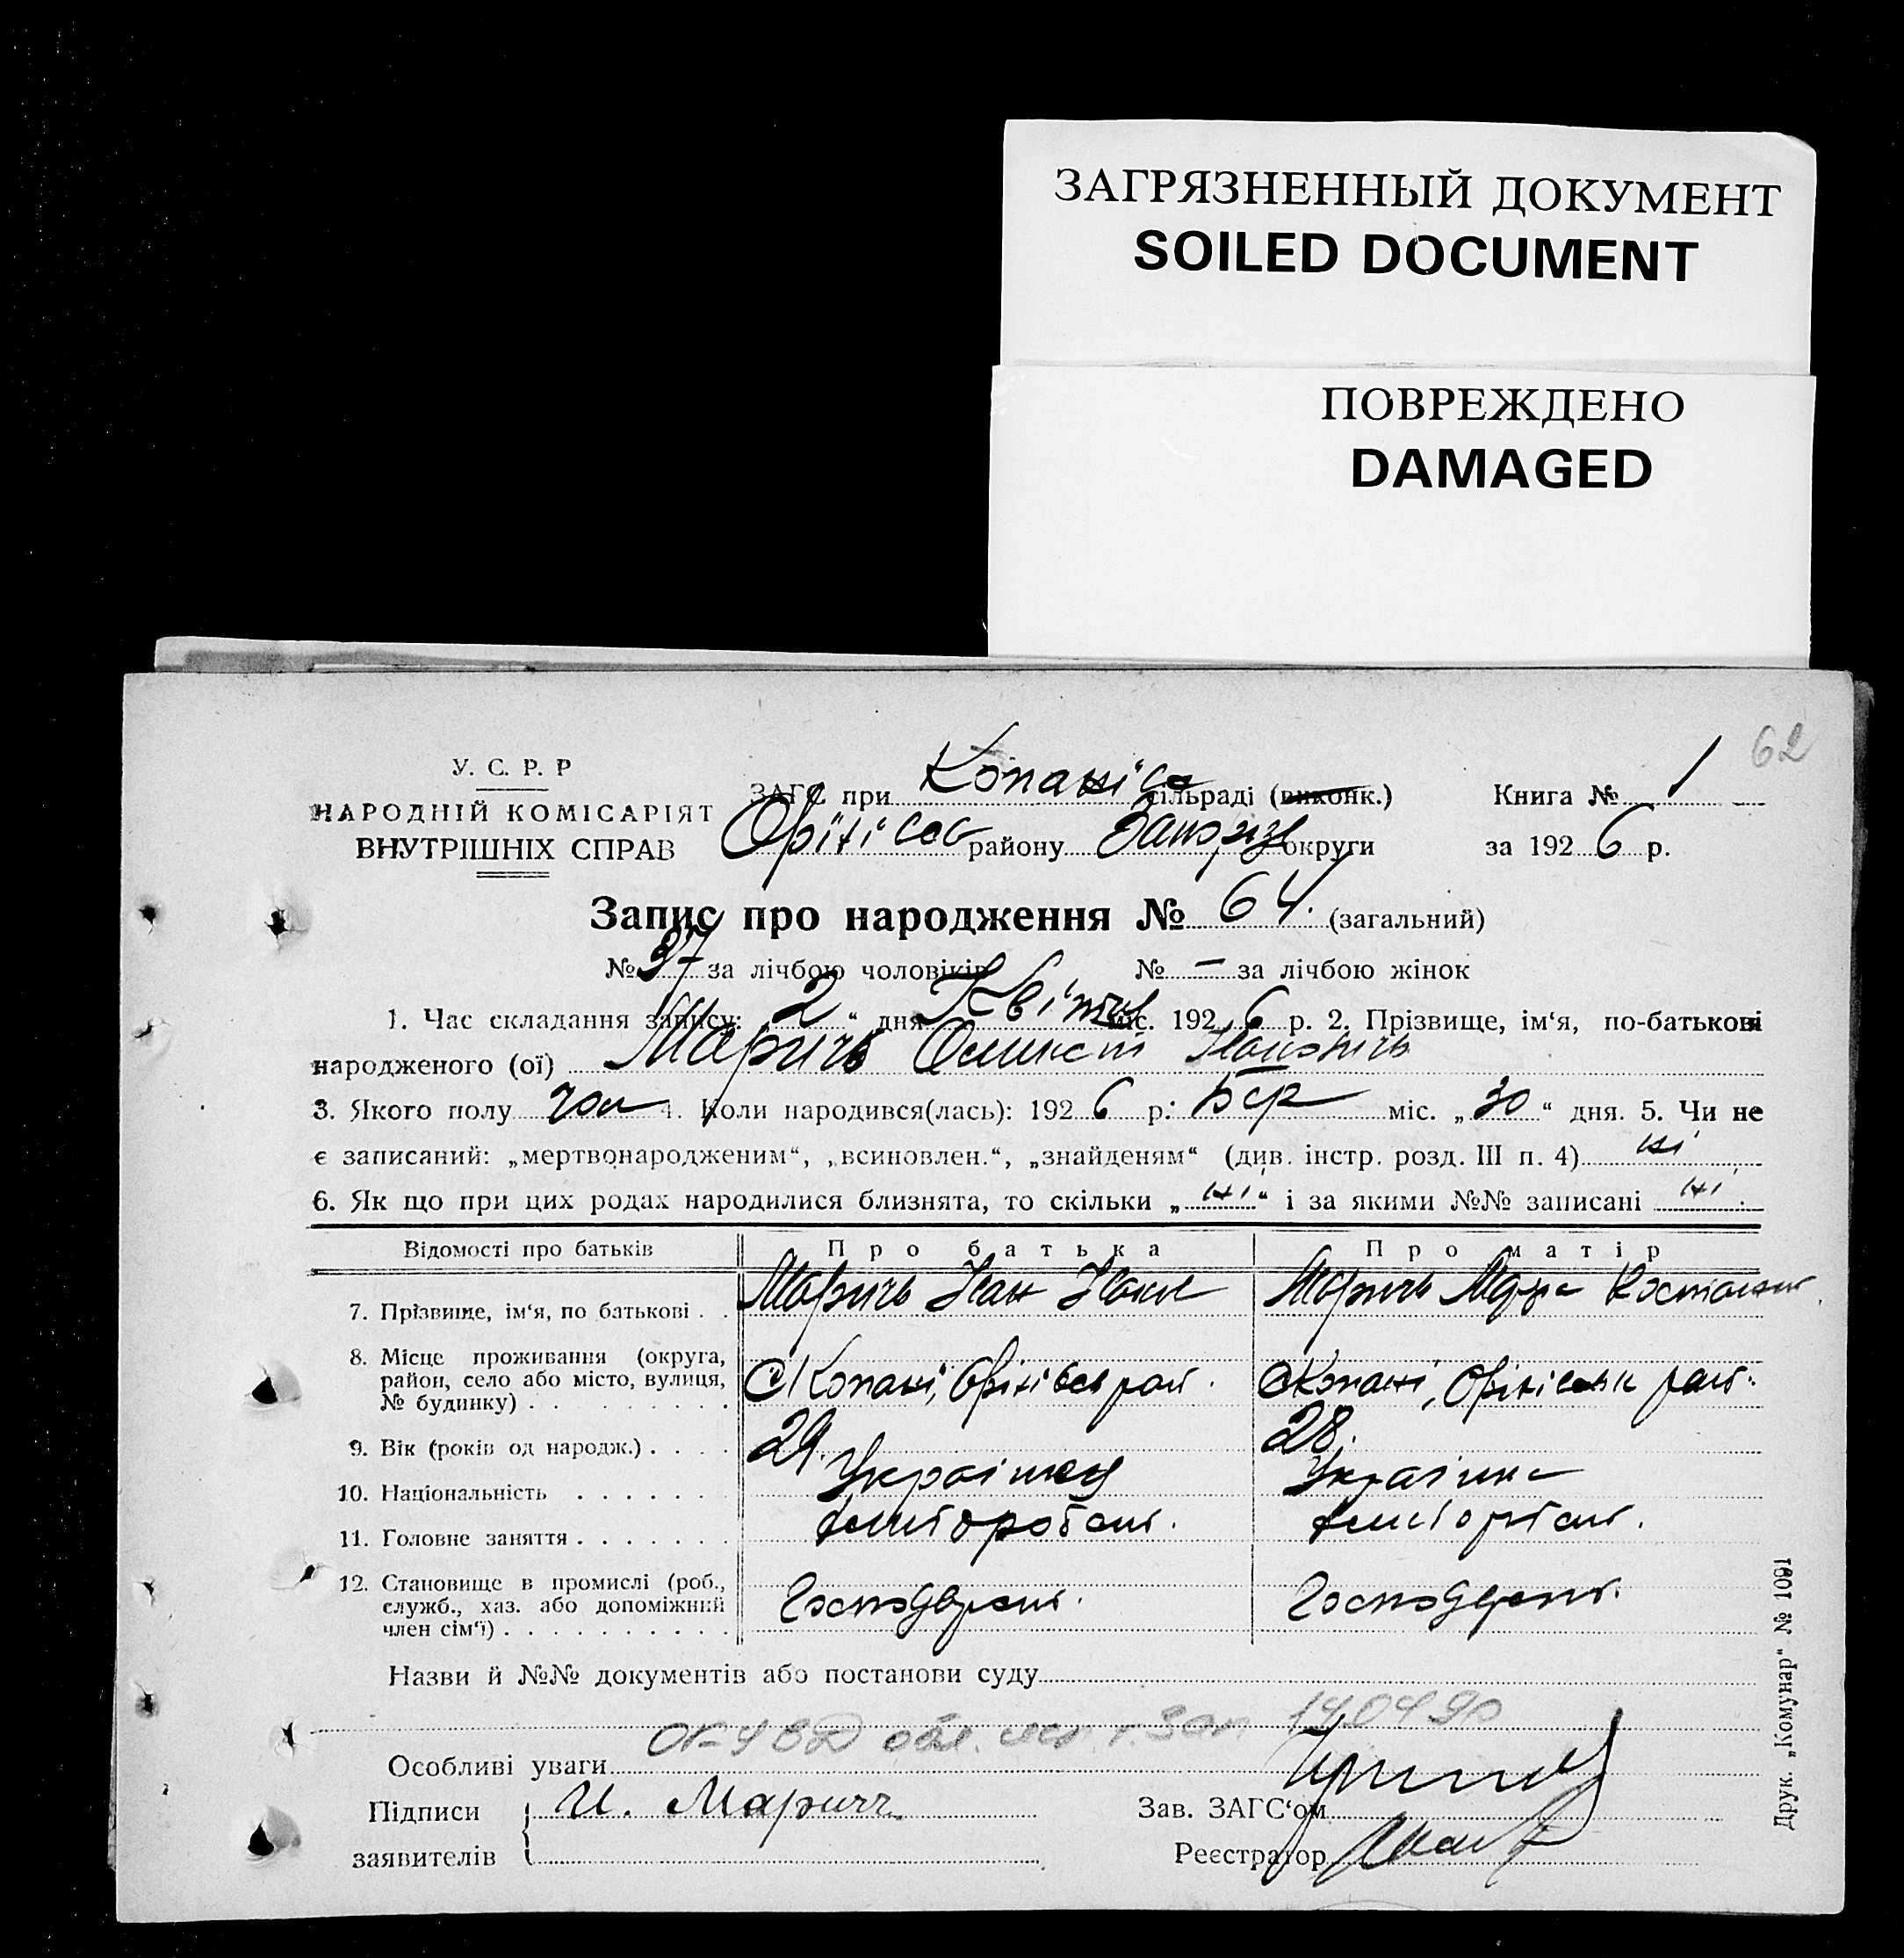 ЗАГРЯЗНЕННЫЙ ДОКУМЕНТ
SOILED DOCUMENT
ПОВРЕЖДЕНО
DAMAGED
62
У. С. Р. Р
НАРОДНІЙ КОМІСАРІЯТ
ВНУТРІШНІХ СПРАВ
ЗАГС при Копанівс сільраді (виконк.) Книга № 1
Оріхівсь району Запоріз округи за 192 6 р.
Запис про народження № 64. (загальний)
№ 37 за лічбою чоловіків № — за лічбою жінок
1. Час складання запису: „ 2 “ дня Квітня міс. 192 6 р. 2. Прізвище, ім‘я, по-батькові
народженого (ої) Маричь
3. Якого полу чол 4. Коли народився(лась): 192 6 р: Бер міс. „ 30 “ дня. 5. Чи не
є записаний: „мертвонародженим“, „всиновлен.“, „знайденям“ (див. інстр. розд. III п. 4) ні
6. Як що при цих родах народилися близнята, то скільки „ ні “ і за якими №№ записані ні
Відомості про батьків Про батька Про матір
7. Прізвище, ім‘я, по батькові . . Маричь Іван Маричь
8. Місце проживання (округа,
район, село або місто, вулиця,
№ будинку) . . . . . . . . . С Копані, Оріхівсь рай. С Копані, рай.
9. Вік (років од народж.) . . . . 29. 28.
10. Національність . . . . . . Українец Українка
11. Головне заняття . . . . . . .
12. Становище в промислі (роб.,
служб., хаз. або допоміжний
член сім‘ї) . . . . . . . . . .
Назви й №№ документів або постанови суду
140490
Особливі уваги
Підписи И. Марич
заявителів
Зав. ЗАГС‘ом
Реєстратор
Друк. „Комунар“ № 1091